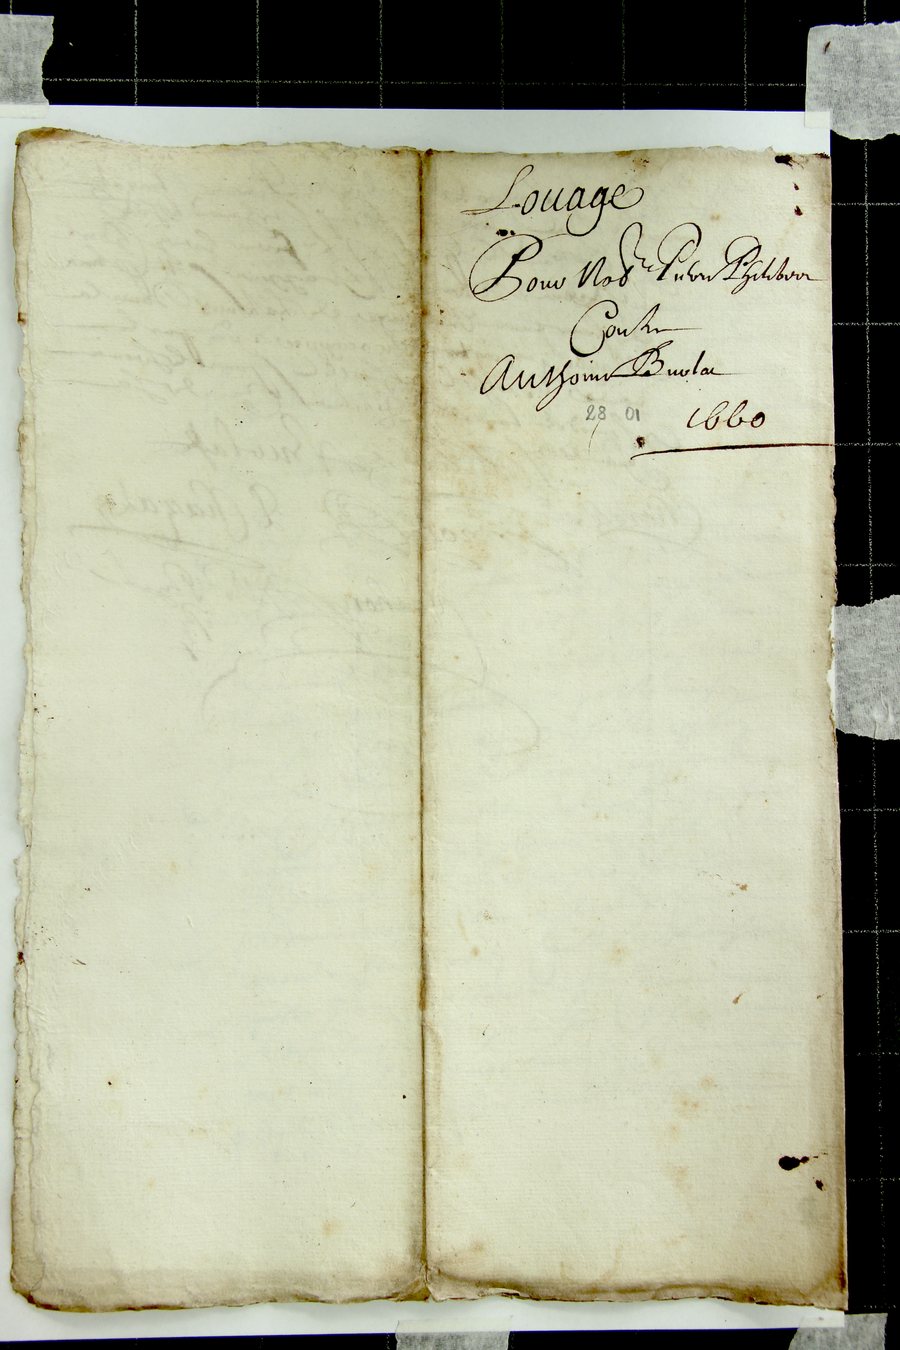 Louage
Pour Nob.le Pierre Philibert
Contre
Anthoine
28 01 1660